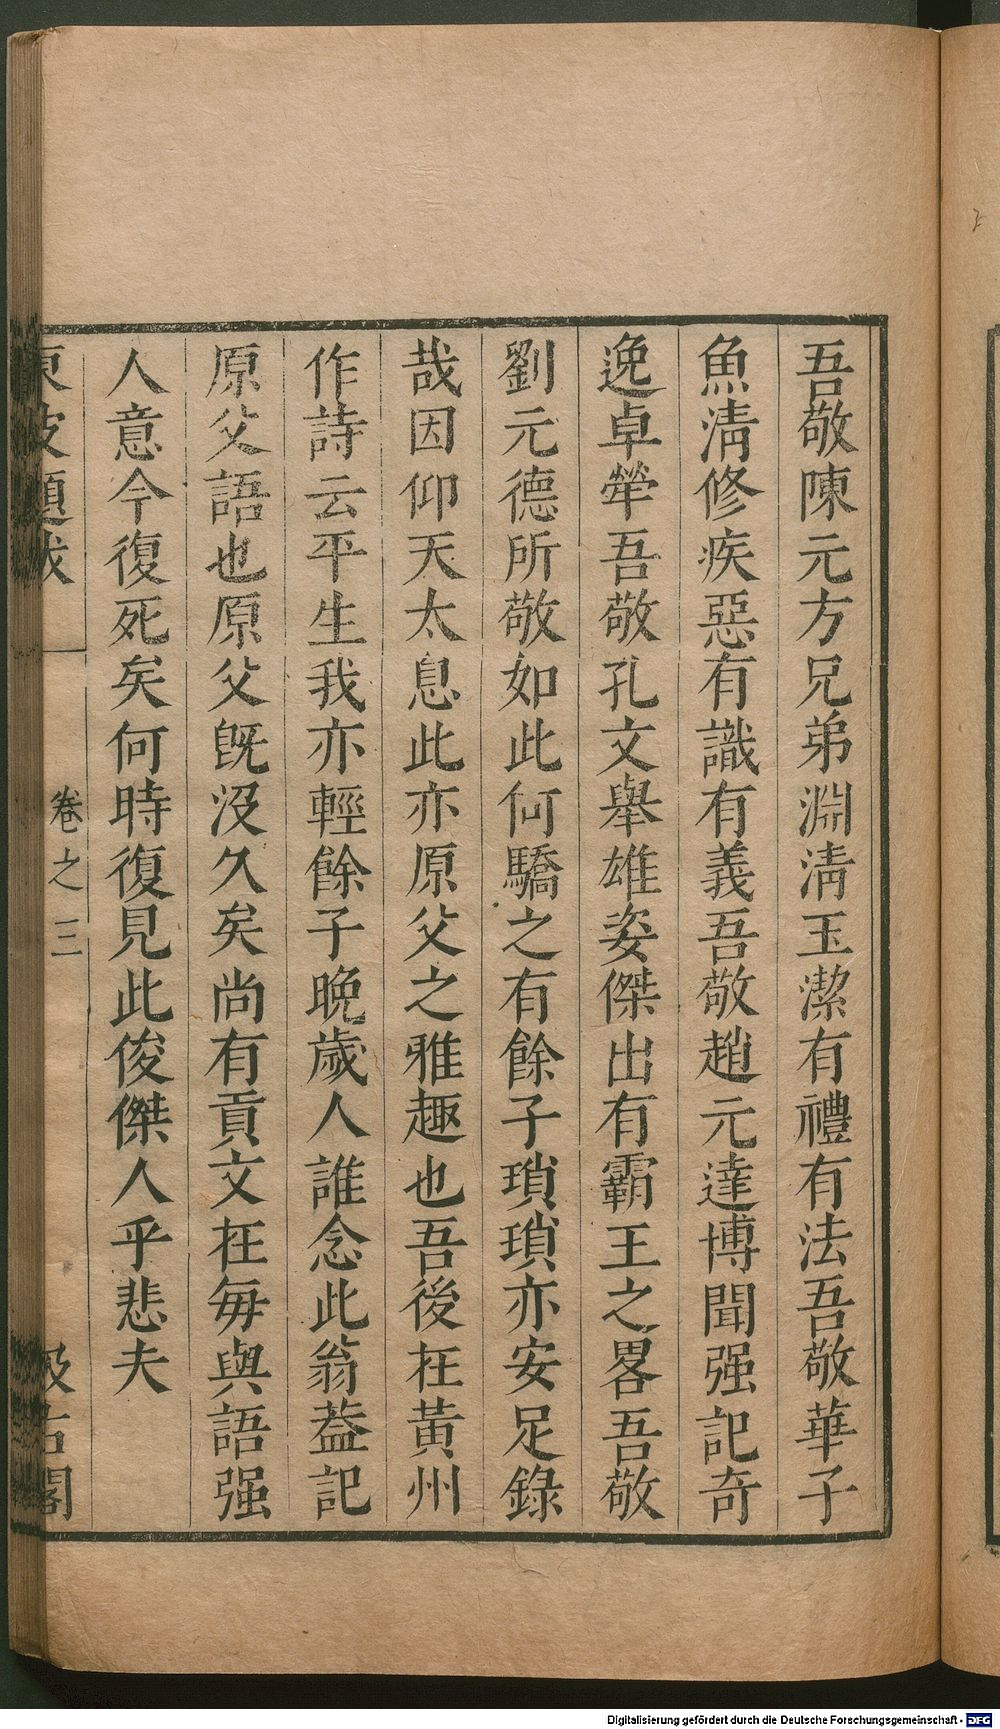 吾敬陳元方兄弟淵清玉潔有禮有法吾敬華子
魚清修疾惡有識有義吾敬趙元達博聞强記奇
逸卓犖吾敬孔文舉雄姿傑出有霸王之畧吾敬
劉元德所敬如此何驕之有餘子瑣瑣亦安足錄
哉因仰天太息此亦原父之雅趣也吾後在黃州
作詩云平生我亦輕餘子晚歲人誰念此翁葢記
原父語也原父旣没久矣尚有貢文在每與語强
人意今復死矣何時復見此俊傑人乎悲夫
東坡題跋
卷之三
汲古閣
Digitalisierung gefördert durch die Deutsche Forschungsgemeinschaft - DFG